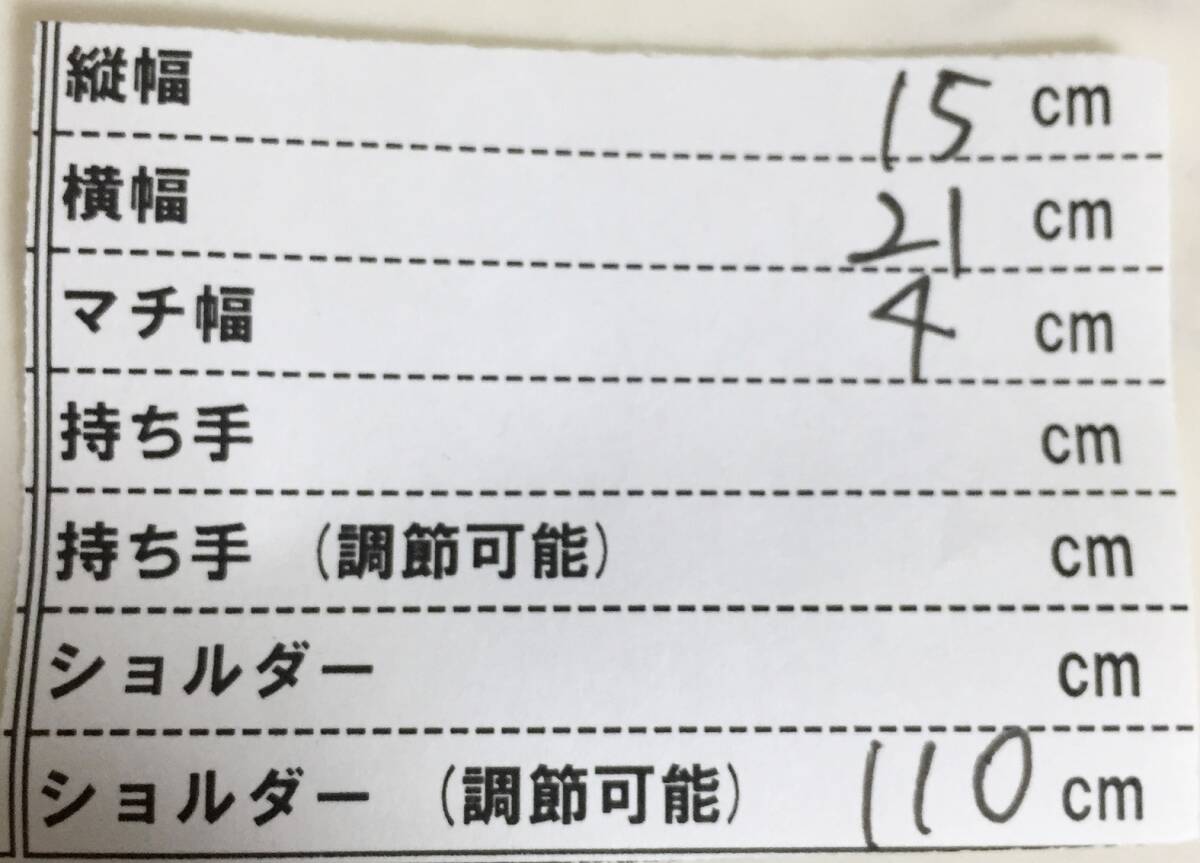 縦幅 15 cm
横幅 21 cm
マチ幅 4 cm
持ち手 cm
持ち手 (調節可能) cm
ショルダー cm
ショルダー (調節可能) 110 cm